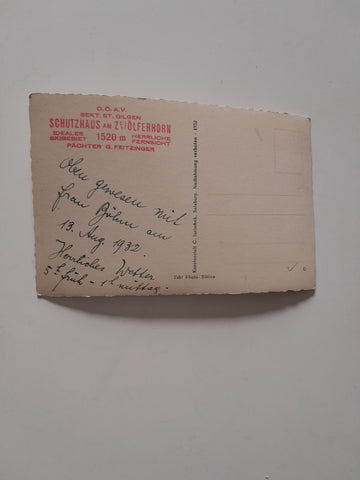 D.Ö.A.V.
SEKT. ST. GILGEN
SCHUTZHAUS AM ZWÖLFERHORN
IDEALES SKIGEBIET 1520 m HERRLICHE FERNSICHT
PÄCHTER G. FEITZINGER
Oben gewesen mit
Frau Böhm am
13. Aug. 1932.
Herrliches Wetter
5h früh – 1h mittag.
Kunstanstalt C. Jurischek, Salzburg. Nachahmung verboten - 1932
Echt Photo